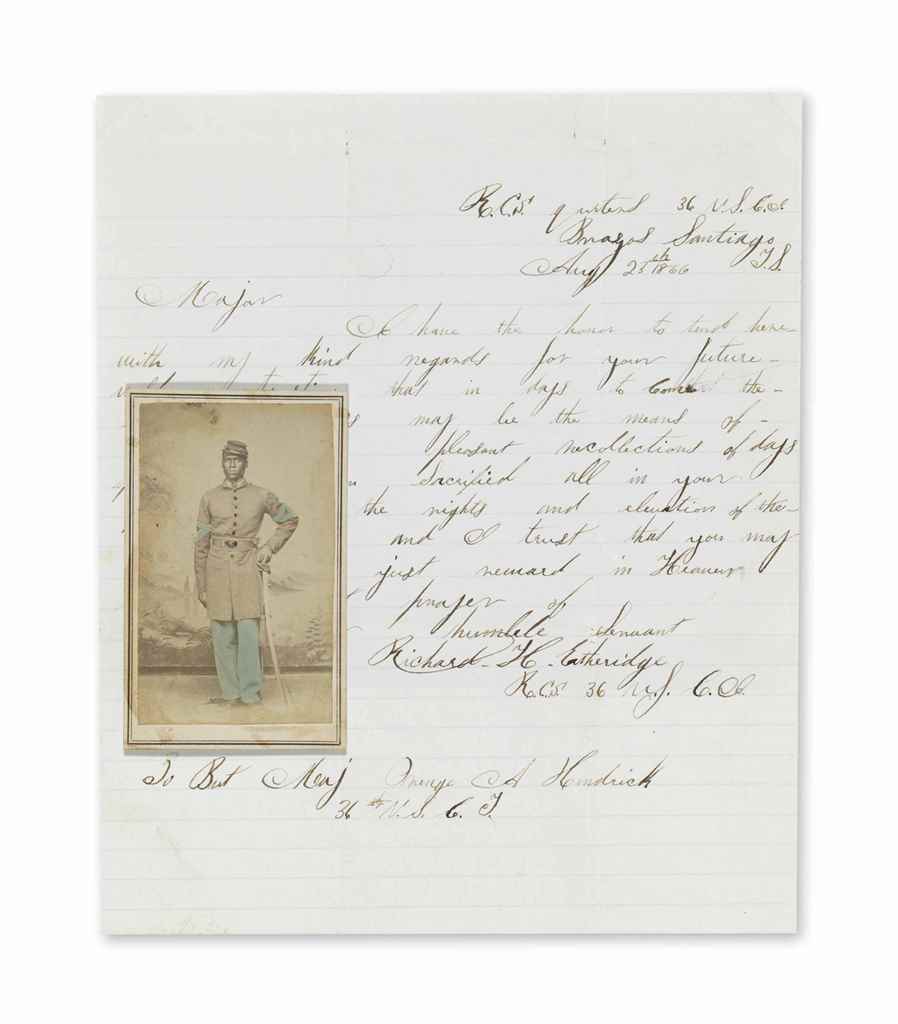 R.C.S. 36 U.S.C.
Brazos Santiago
Aug 25th 1866 T.S.
Major
I have the honor to tend here
with my kind regards for your future
that in days to come the
may be the means of
pleasant recollections of days
sacrificed all in your
the rights and elevation of the
and I trust that you may
just reward in Heaven
prayer of
humble servant
Richard H. Etheridge
R.C.S 36 U.S. C.
To But Maj Orange A Hendrick
36th U.S. C. T.